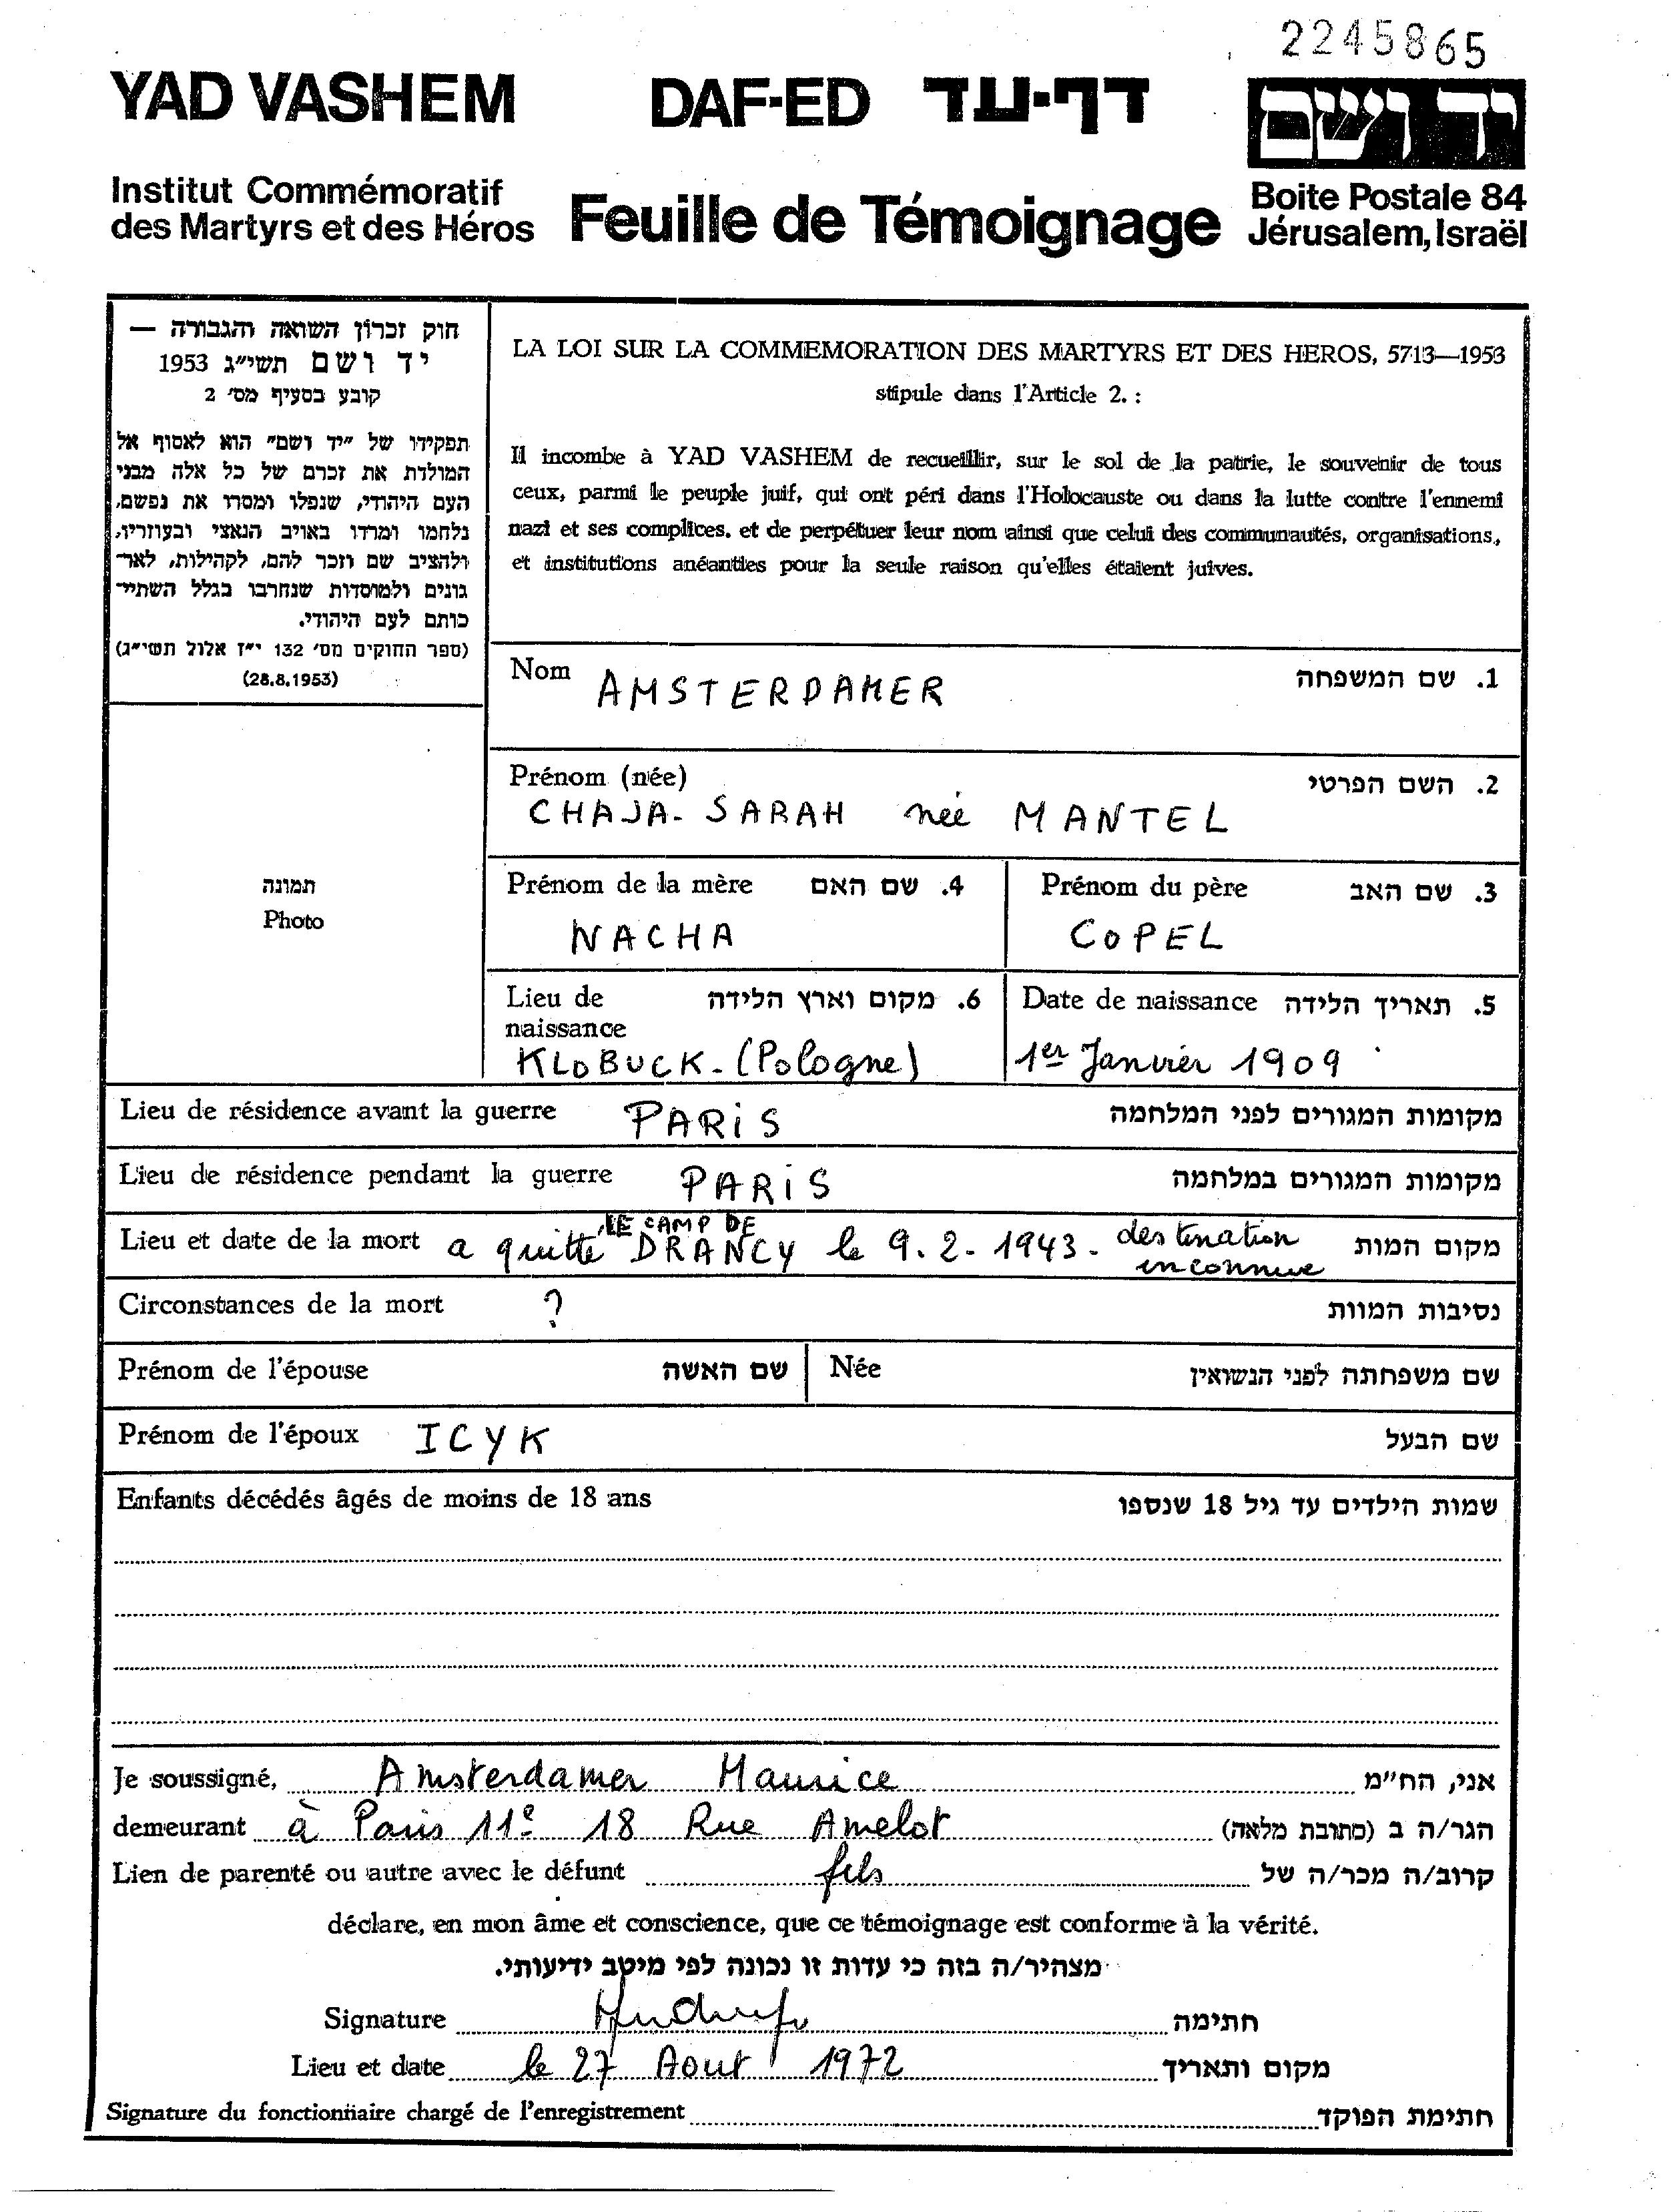 2245865
YAD VASHEM DAF-ED דף-עד יד ושם
Institut Commémoratif
des Martyrs et des Héros
Feuille de Témoignage
Boite Postale 84
Jérusalem, Israël
חוק זכרון השואה והגבורה —
יד ושם תשי״ג 1953
קובע בסעיף מס׳ 2
תפקידו של ״יד ושם״ הוא לאסוף אל
המולדת את זכרם של כל אלה מבני
העם היהודי, שנפלו ומסרו את נפשם,
נלחמו ומרדו באויב הנאצי ובעוזריו,
ולהציב שם וזכר להם, לקהילות, לאר־
גונים ולמוסדות שנחרבו בגלל השתיי־
כותם לעם היהודי.
(ספר החוקים מס׳ 132 י״ז אלול תשי״ג)
(28.8.1953)
LA LOI SUR LA COMMEMORATION DES MARTYRS ET DES HEROS, 5713—1953
stipule dans l'Article 2. :
Il incombe à YAD VASHEM de recueillir, sur le sol de la patrie, le souvenir de tous
ceux, parmi le peuple juif, qui ont péri dans l'Holocauste ou dans la lutte contre l'ennemi
nazi et ses complices, et de perpétuer leur nom ainsi que celui des communautés, organisations,
et institutions anéanties pour la seule raison qu'elles étaient juives.
תמונה
Photo
Nom AMSTERDAMER 1. שם המשפחה
Prénom (née) 2. השם הפרטי
CHAJA- SARAH née MANTEL
Prénom de la mère 4. שם האם Prénom du père 3. שם האב
NACHA COPEL
Lieu de naissance 6. מקום וארץ הלידה Date de naissance 5. תאריך הלידה
KLOBUCK - (Pologne) 1er Janvier 1909
Lieu de résidence avant la guerre PARIS מקומות המגורים לפני המלחמה
Lieu de résidence pendant la guerre PARIS מקומות המגורים במלחמה
Lieu et date de la mort a quitté LE CAMP DE DRANCY le 9.2.1943 - destination inconnue מקום המות
Circonstances de la mort ? נסיבות המוות
Prénom de l'épouse שם האשה Née שם משפחתה לפני הנשואין
Prénom de l'époux ICYK שם הבעל
Enfants décédés âgés de moins de 18 ans שמות הילדים עד גיל 18 שנספו
Je soussigné, Amsterdamer Maurice אני, הח״מ
demeurant à Paris 11e 18 Rue Amelot הגר/ה ב (כתובת מלאה)
Lien de parenté ou autre avec le défunt fils קרוב/ה מכר/ה של
déclare, en mon âme et conscience, que ce témoignage est conforme à la vérité.
מצהיר/ה בזה כי עדות זו נכונה לפי מיטב ידיעותי.
Signature חתימה
Lieu et date le 27 Aout 1972 מקום ותאריך
Signature du fonctionnaire chargé de l'enregistrement חתימת הפוקד